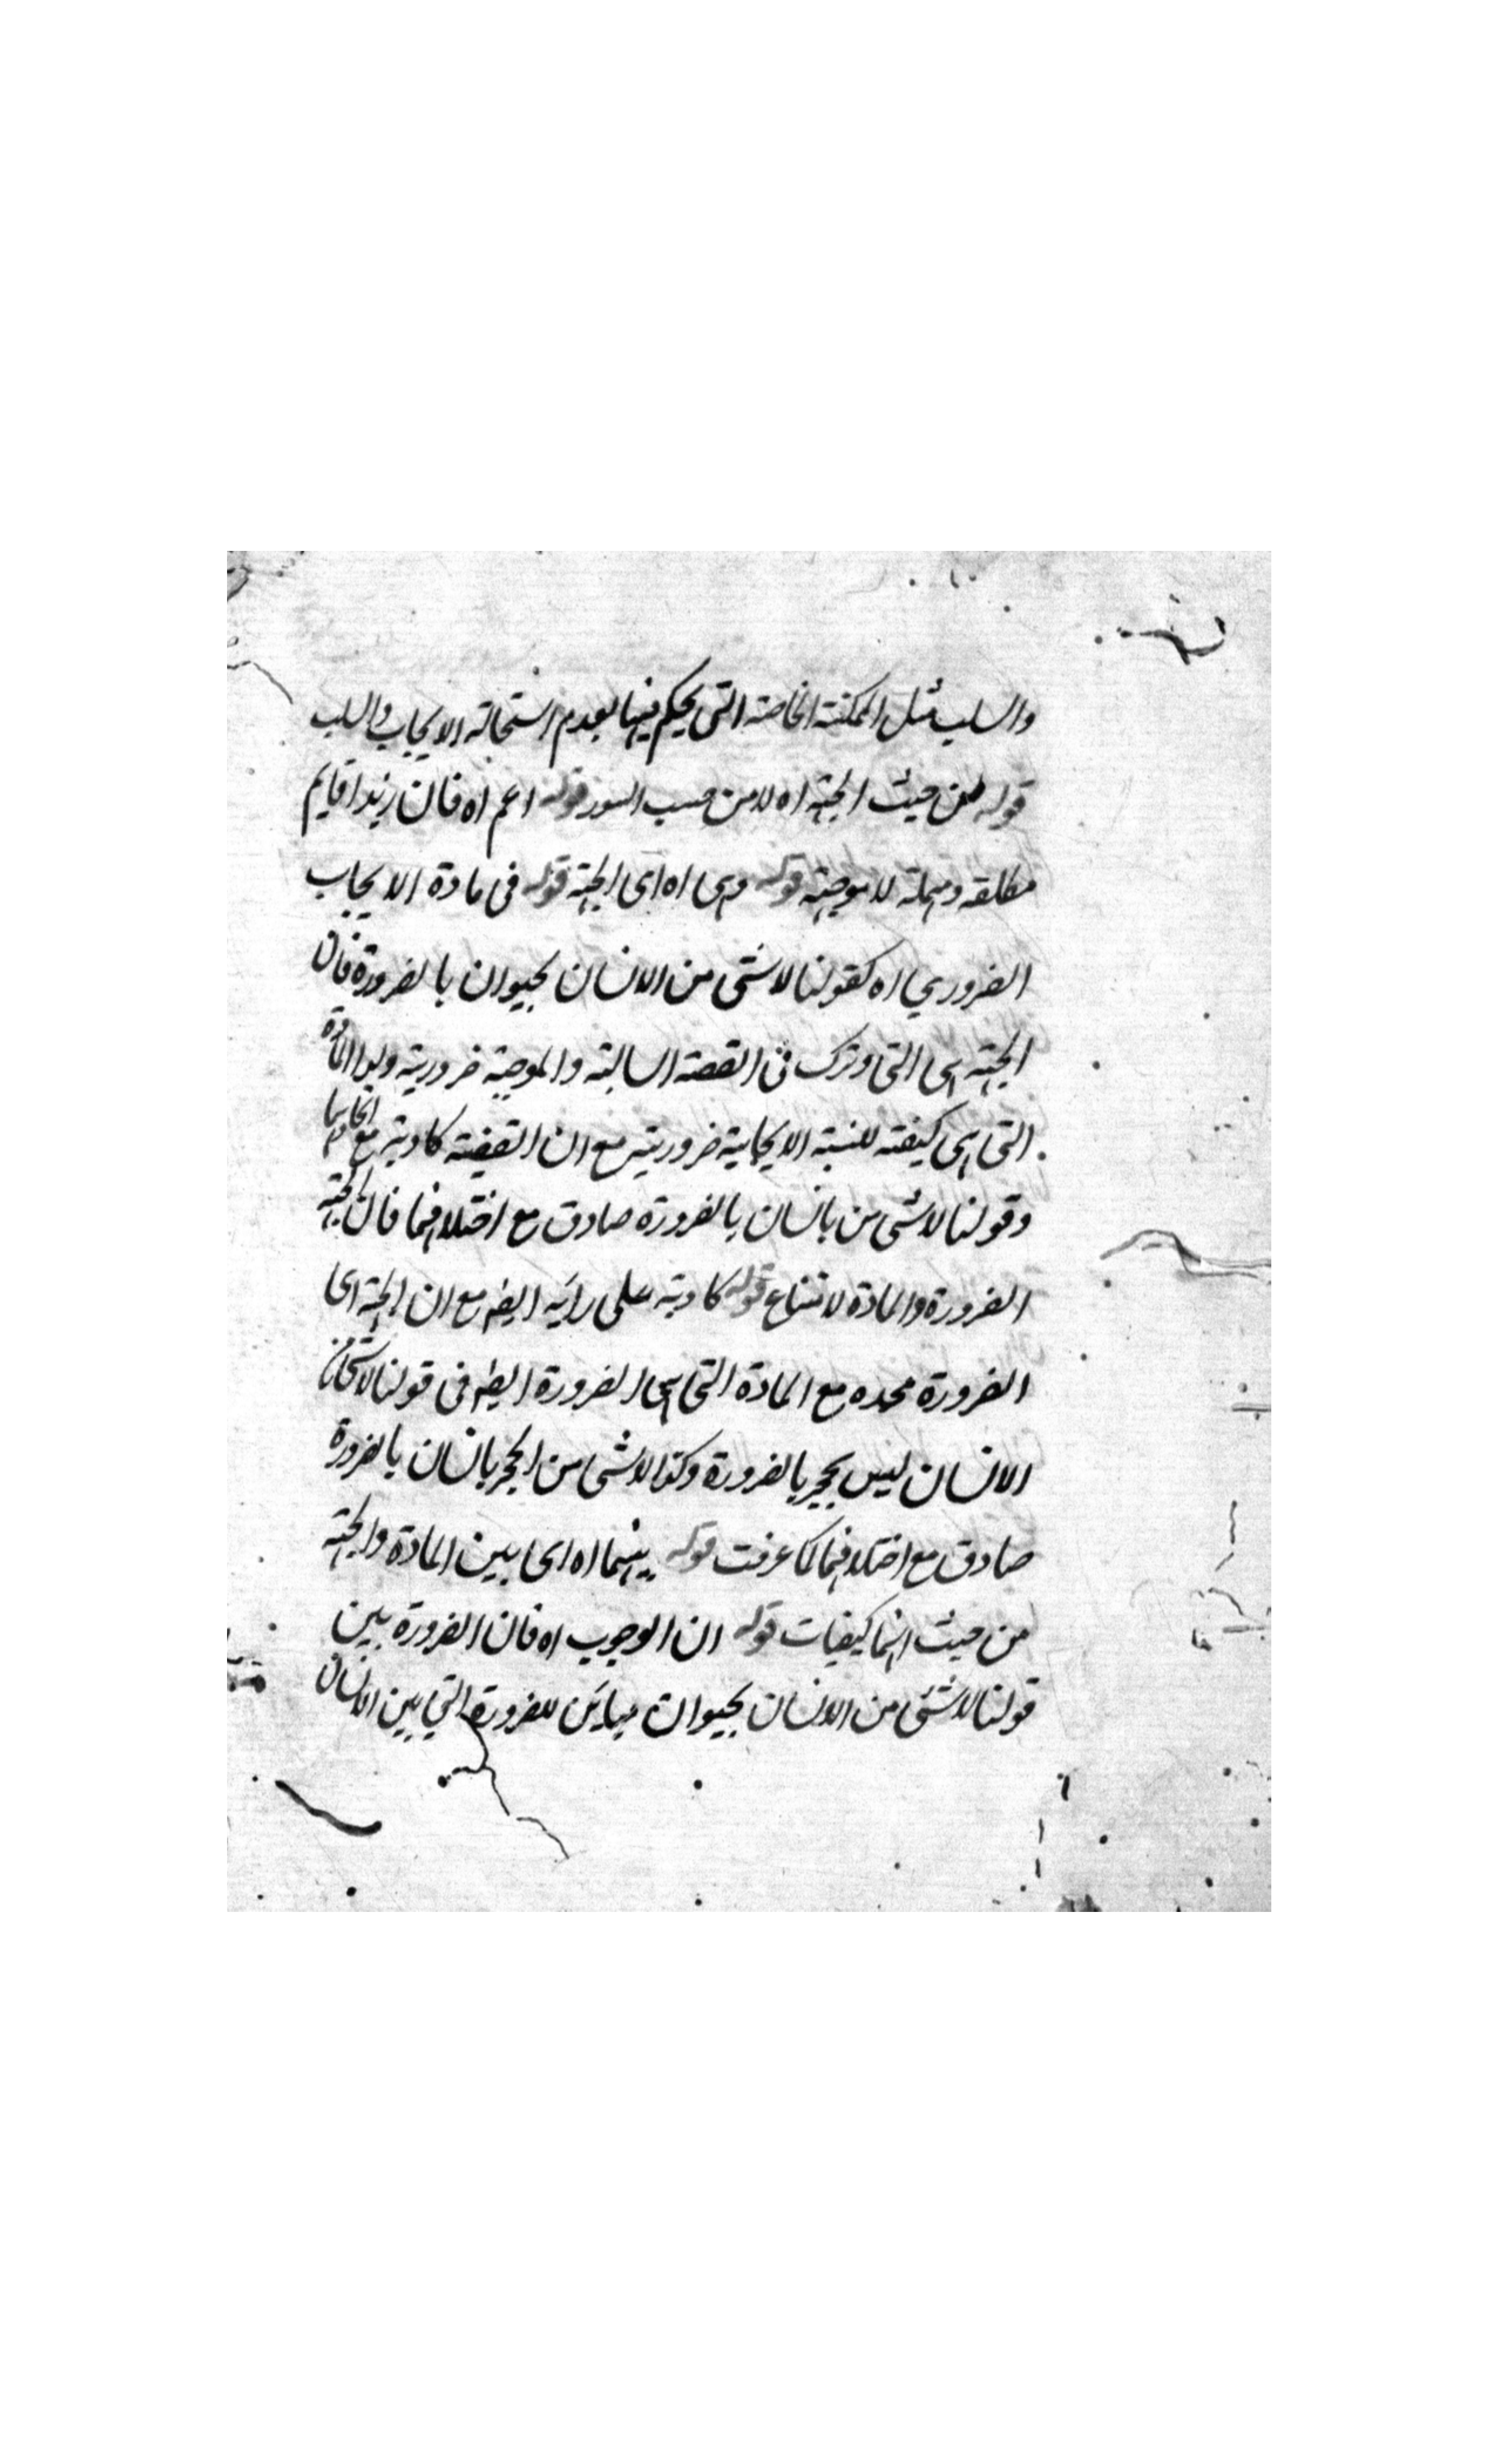 والسلب مثل الممكنة الخاصة التى يحكم فيها بعدم استحالة الايجاب والسلب
قوله من حيث الجهة اه لا من حسب السور قوله اعم اه فان زيدا قايم
مطلقة ومهملة لا موجهة قوله وهى اه اى الجهة قوله فى مادة الايجاب
الضروري اه كقولنا لا شى من الانسان بحيوان بالضرورة فان
الجهة هى التى وترك فى القصة السالبة والموجبة ضرورية والمادة
التى هى كيفية للنسبة الايجابية ضرورية مع ان القضية كاذبة مع اتحادهما
وقولنا لا شى من بانسان بالضرورة صادق مع اختلافهما فان الجهة
الضرورة والمادة لامتناع قوله كاذبة على رايه ايضه مع ان الجهة اى
الضرورة متحده مع المادة التى هى الضرورة ايضه فى قولنا لا شى من
الانسان ليس بحجر بالضرورة وكذا لا شى من الحجر بانسان بالضرورة
صادق مع اختلافهما كما عرفت قوله بينهما اه اى بين المادة والجهة
من حيث انهما كيفيات قوله ان الوجوب اه فان الضرورة بين
قولنا لا شئى من الانسان بحيوان مباين للضرورة التي بين الانسان